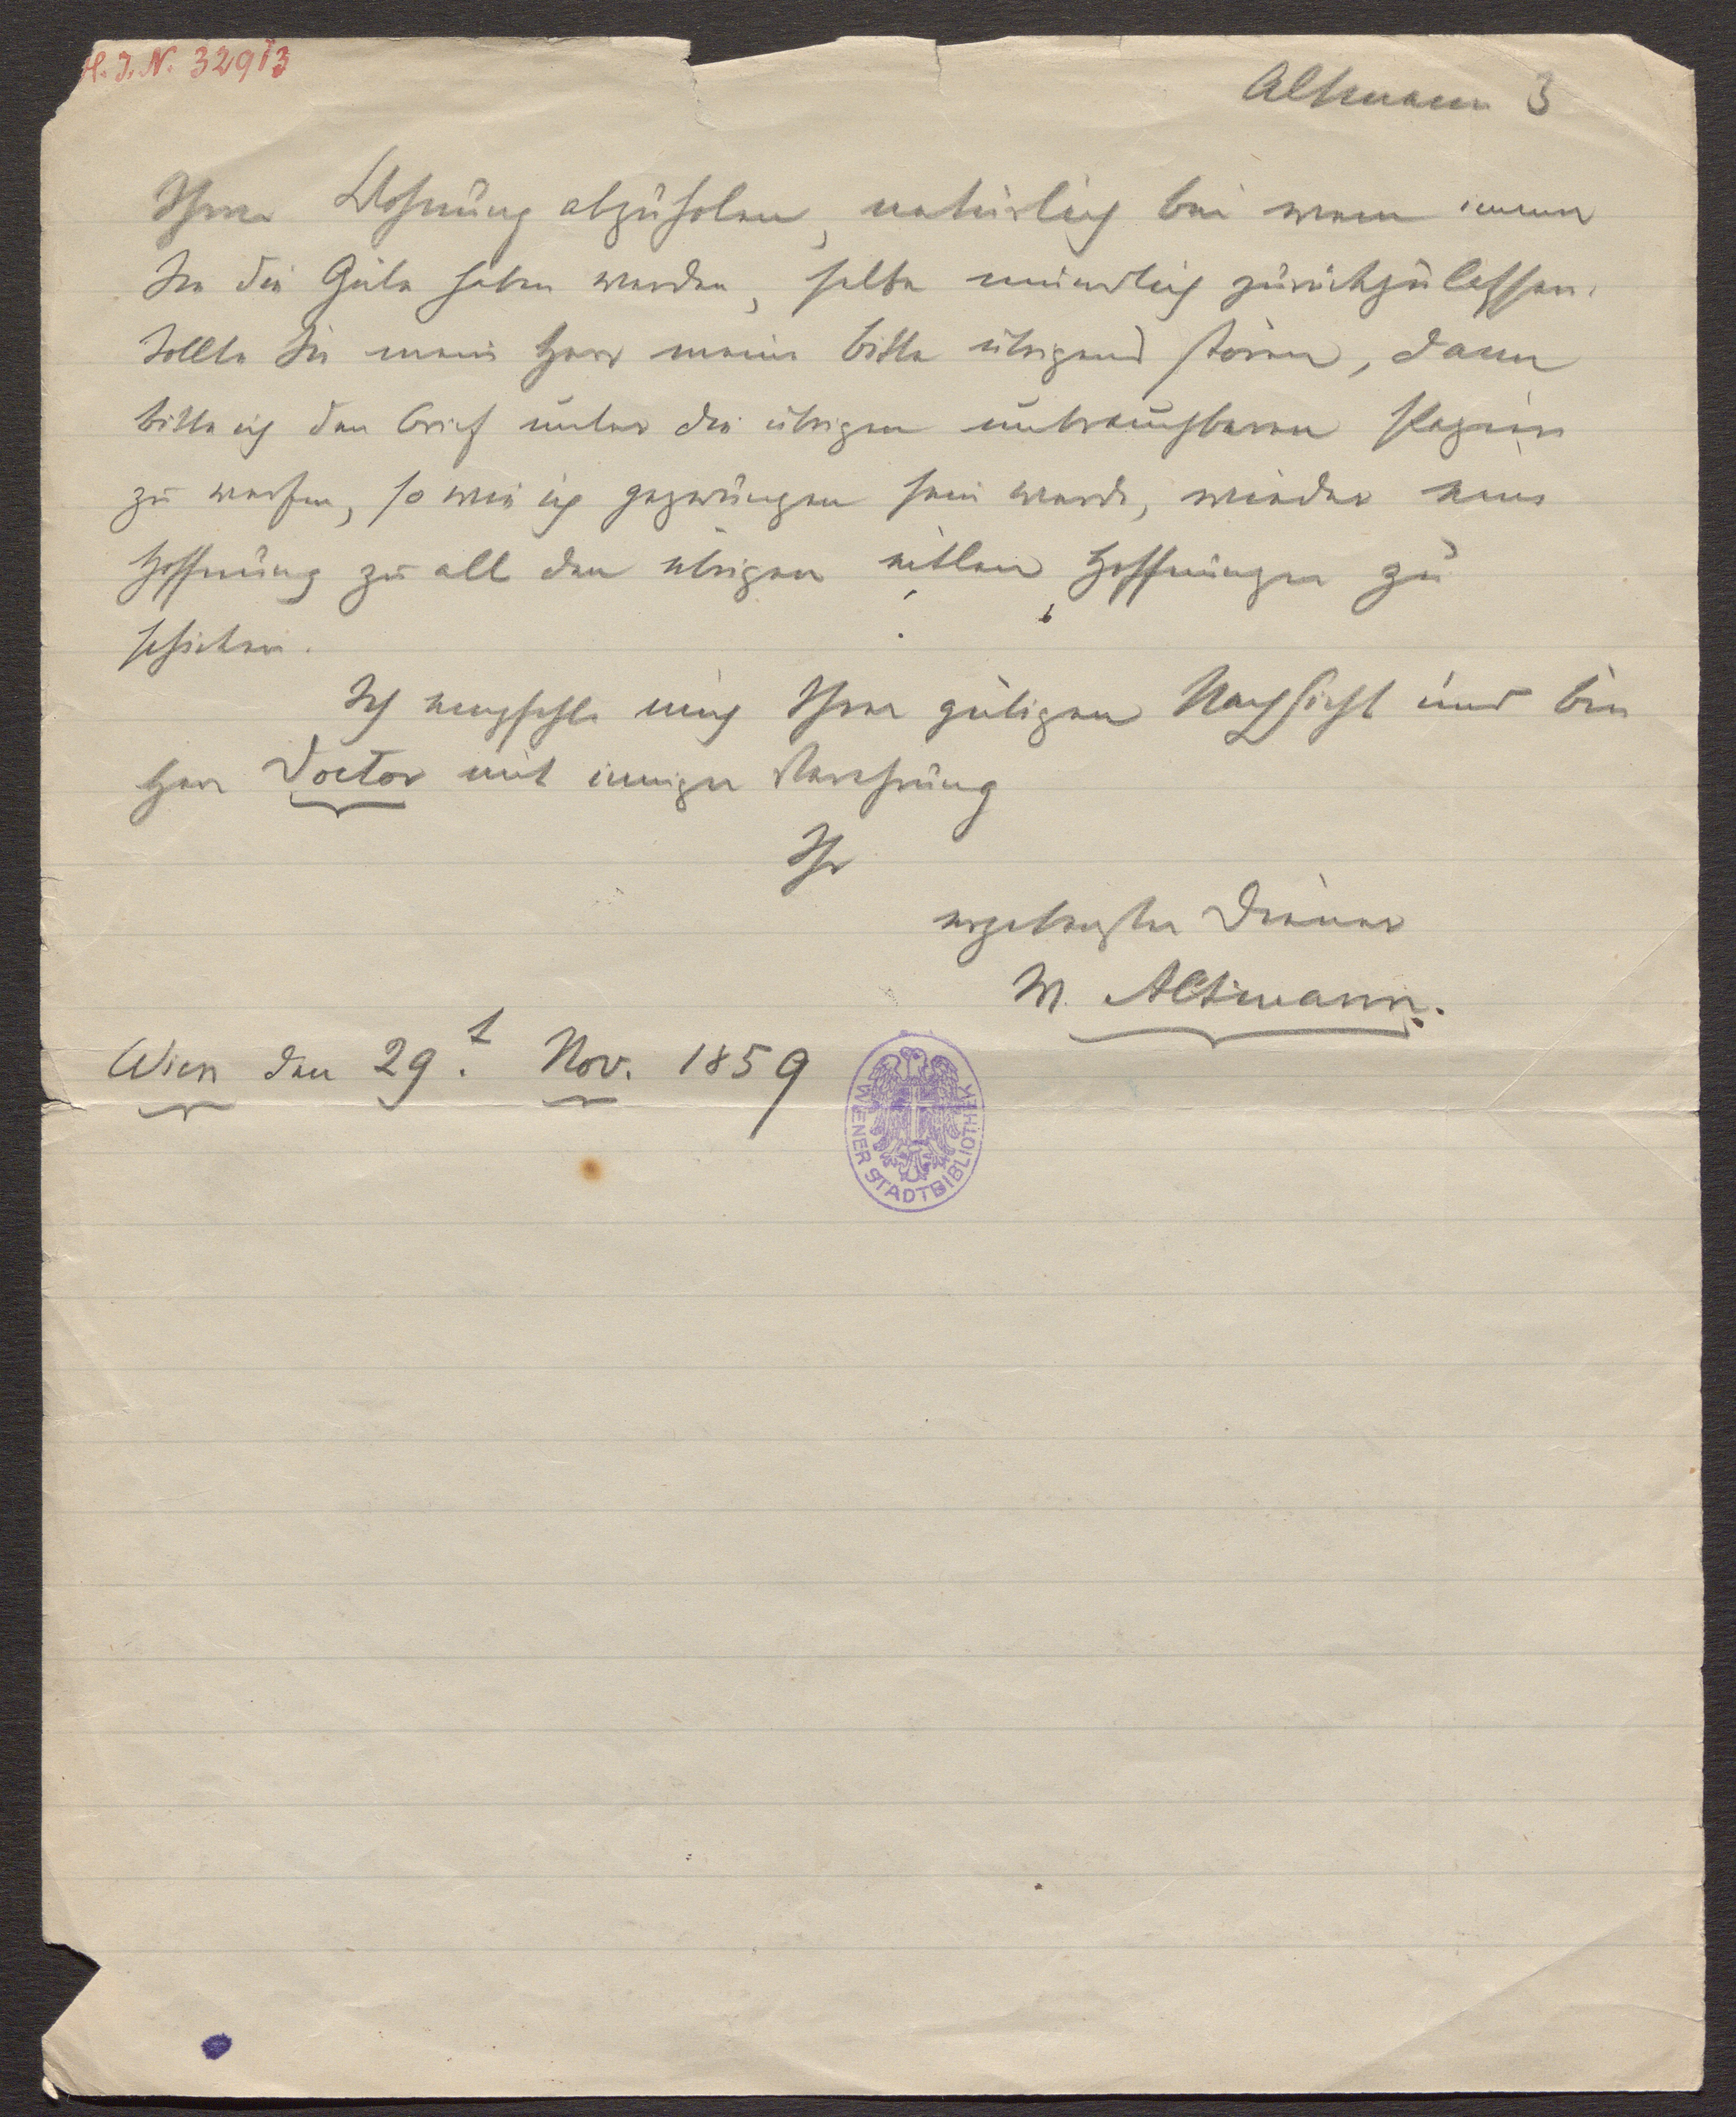 H. I. N. 32913
Altmann 3
Ihrer Wohnung abzuholen, natürlich bei wem immer
Sie die Güte haben werden, selbe mündlich zurückzulassen.
Sollte Sie mein Herr meine Bitte übrigens stören, dann
bitte ich den Brief unter die übrigen unbrauchbaren Papiere
zu werfen, so wie ich gezwungen sein werde, wieder eine
Hoffnung zu all den übrigen eitlen Hoffnungen zu
schicken.
Ich empfehle mich Ihrer gütigen Nachsicht und bin
Herr Doctor mit inniger Verehrung
Ihr
ergebenster Diener
M. Altmann.
Wien den 29.t Nov. 1859
WIENER STADTBIBLIOTHEK